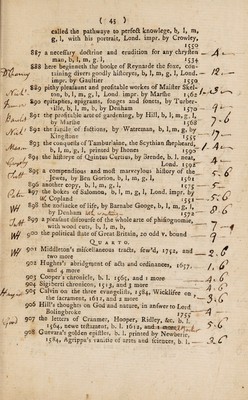 ( 45 )
called the pathwaye to perfect knowlege, b, l, m,
g, l, with his portrait, Lond. impr. by Crowley,
1550
887 a necessary doctrine and erudition for any chrysten
man, b, l, m, g, l. 1534
888 here beginneth the booke of Reynarde the foxe, con-
taining divers goodly historyes, b, l, m, g, l, Lond.
impr. by Gaultier 1550
889 pithy pleasaunt and profitable workes of Maister Skel-
ton, b, l, m, g, l, Lond. impr. by Marshe 1568
890 epitaphes, epigrams, songes and sonets, by Turber-
vile, b, l, m, b, by Denham 1570
891 the profitable arte of gardening, by Hill, b, l, m, g, l,
by Marshe 1568
892 the of factions, by Waterman, b, l, m, g, by
Kingstone
893 the conquests of Tamburlaine, the Scythian shepheard,
b, l, m, g, l, printed by Ihones 1590
894 the historye of Quintus Curtius, by Brende, b, l, neat,
Lond. 1592
895 a compendious and most marveylous history of the
Jewes, by Ben Gorion, b, l, m, g, l 1561
896 another copy, b, l, m, g, l, 1575
897 the bokes of Salomon, b, l, m, g, l, Lond. impr. by
W, Copland 1551
898 the zodiacke of life, by Barnabe Googe, b, l, m, g, l,
by Denham
899 a pleasant discourse of the whole arte of phisiognomie,
with wood cuts, b, l, m, b,
900 the political state of Great Britain, 20 odd v. bound
QUARTO.
901 Middleton's miscellaneous tracts, sew'd, 1752, and
two more
902 Hughes's abridgment of acts and ordinances, 1657,
and 4 more
903 Cooper's chronicle, b. l. 1565, and 1 more
904 Sigiberti chronicon, 1513, and 3 more
905 Calvin on the three evangelists, 1584, Wickliffes on
the sacrament, 1612, and 2 more
906 Hill's thoughts on God and nature, in answer to Lord
Bolingbroke 1755
907 the letters of Cranmer, Hooper, Ridley, &c. b. l.
1564, newe testament, b. l. 1612, and 2 more
908 Guevara's golden epistles, b. l. printed by Newberie,
1584, Agrippa's vanitie of artes and sciences, b. l.